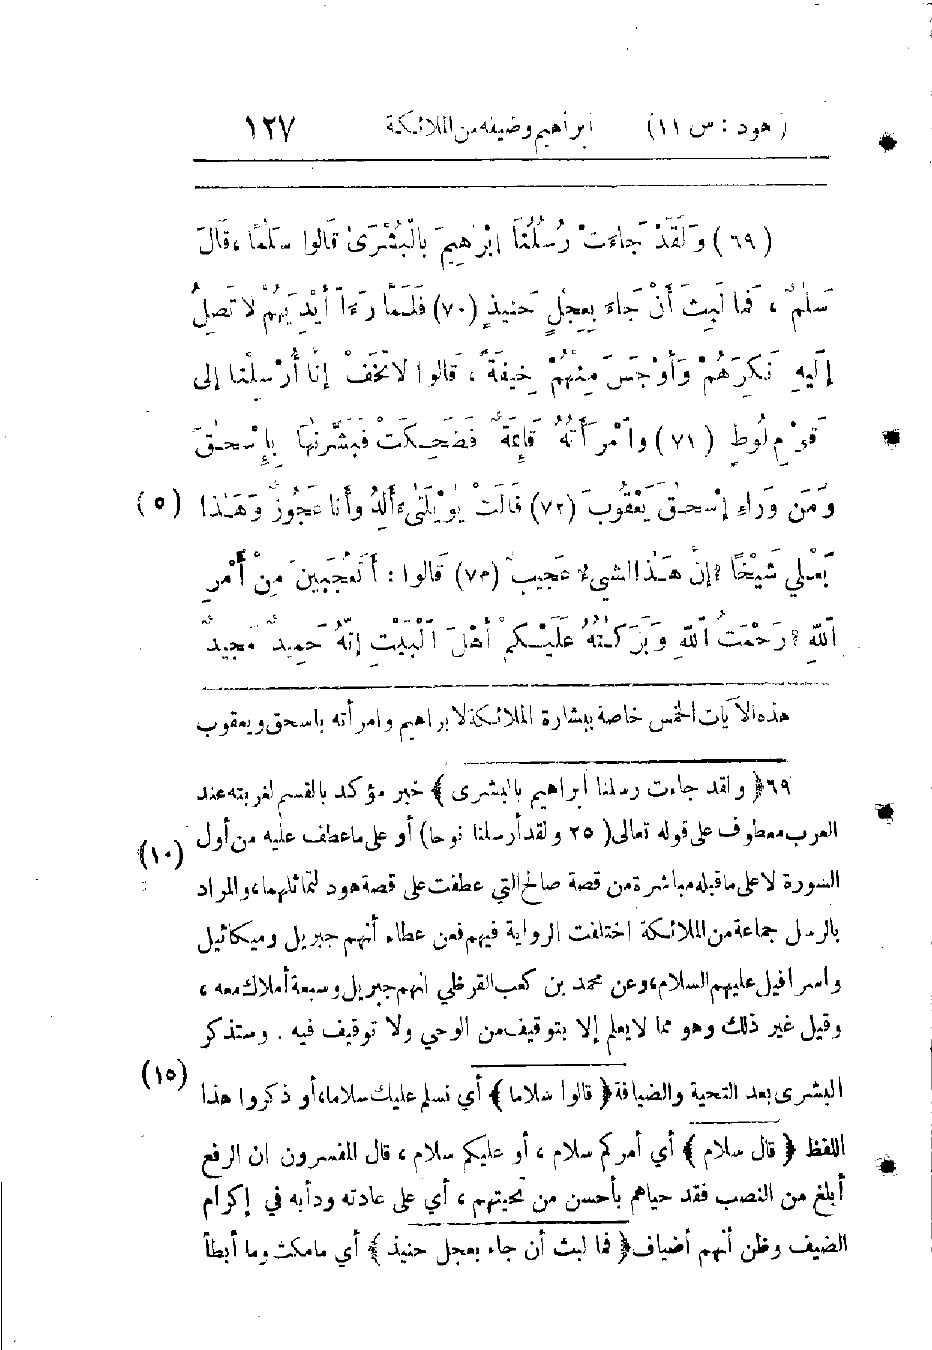 (هود : س ١١) ابراهيم وضيفه من الملائكة ١٢٧
(٦٩) وَلَقَدْ جَاءَتْ رُسُلُنَا ابْرٰهِيمَ بِالْبُشْرَىٰ قَالُوا سَلٰمًا ، قَالَ
سَلٰمٌ ، فَمَا لَبِثَ أَنْ جَاءَ بِعِجْلٍ حَنِيذٍ (٧٠) فَلَمَّا رَءَآ أَيْدِيَهُمْ لَا تَصِلُ
إِلَيْهِ نَكِرَهُمْ وَأَوْجَسَ مِنْهُمْ خِيفَةً ، قَالُوا لَا تَخَفْ إِنَّا أُرْسِلْنَا إِلى
قَوْمِ لُوطٍ (٧١) وامْرَأَتُهُ قَائِمَةٌ فَضَحِكَتْ فَبَشَّرْنٰهَا بِإِسْحٰقَ
وَمِن وَرَاءِ إِسْحٰقَ يَعْقُوبَ (٧٢) قَالَتْ يٰوَيْلَتَىٰ ءَأَلِدُ وَأَنَا عَجُوزٌ وَهٰذَا (٥)
بَعْلِي شَيْخًا ؟ إِنَّ هٰذَا لشيءٌ عَجِيبٌ (٧٣) قَالُوا : أَتَعْجَبِينَ مِنْ أَمْرِ
اللهِ ؟ رَحْمَتُ اللهِ وَبَرَكٰتُهُ عَلَيْكُمْ أَهْلَ الْبَيْتِ إِنَّهُ حَمِيدٌ مَجِيدٌ
هذه الآيات الخمس خاصة ببشارة الملائكة لابراهيم وامرأته باسحق ويعقوب
٦٩ ﴿ ولقد جاءت رسلنا ابراهيم بالبشرى ﴾ خبر مؤكد بالقسم لغربته عند
العرب معطوف على قوله تعالى ( ٢٥ ولقد أرسلنا نوحا) أو على ما عطف عليه من أول
السورة لا على ما قبله مباشرة من قصة صالح التي عطفت على قصة هود لتماثلهما، والمراد (١٠)
بالرسل جماعة من الملائكة اختلفت الرواية فيهم فعن عطاء أنهم جبريل وميكائيل
واسرافيل عليهم السلام، وعن محمد بن كعب القرظي انهم جبريل وسبعة أملاك معه ،
وقيل غير ذلك وهو مما لا يعلم إلا بتوقيف من الوحي ولا توقيف فيه . وستذكر
البشرى بعد التحية والضيافة ﴿ قالوا سلاما ﴾ أي نسلم عليك سلاما، أو ذكروا هذا (١٥)
اللفظ ﴿ قال سلام ﴾ أي أمركم سلام ، أو عليكم سلام ، قال المفسرون ان الرفع
أبلغ من النصب فقد حياهم بأحسن من تحيتهم ، أي على عادته ودأبه في إكرام
الضيف وظن أنهم أضياف ﴿ فما لبث أن جاء بعجل حنيذ ﴾ أي ما مكث وما أبطأ